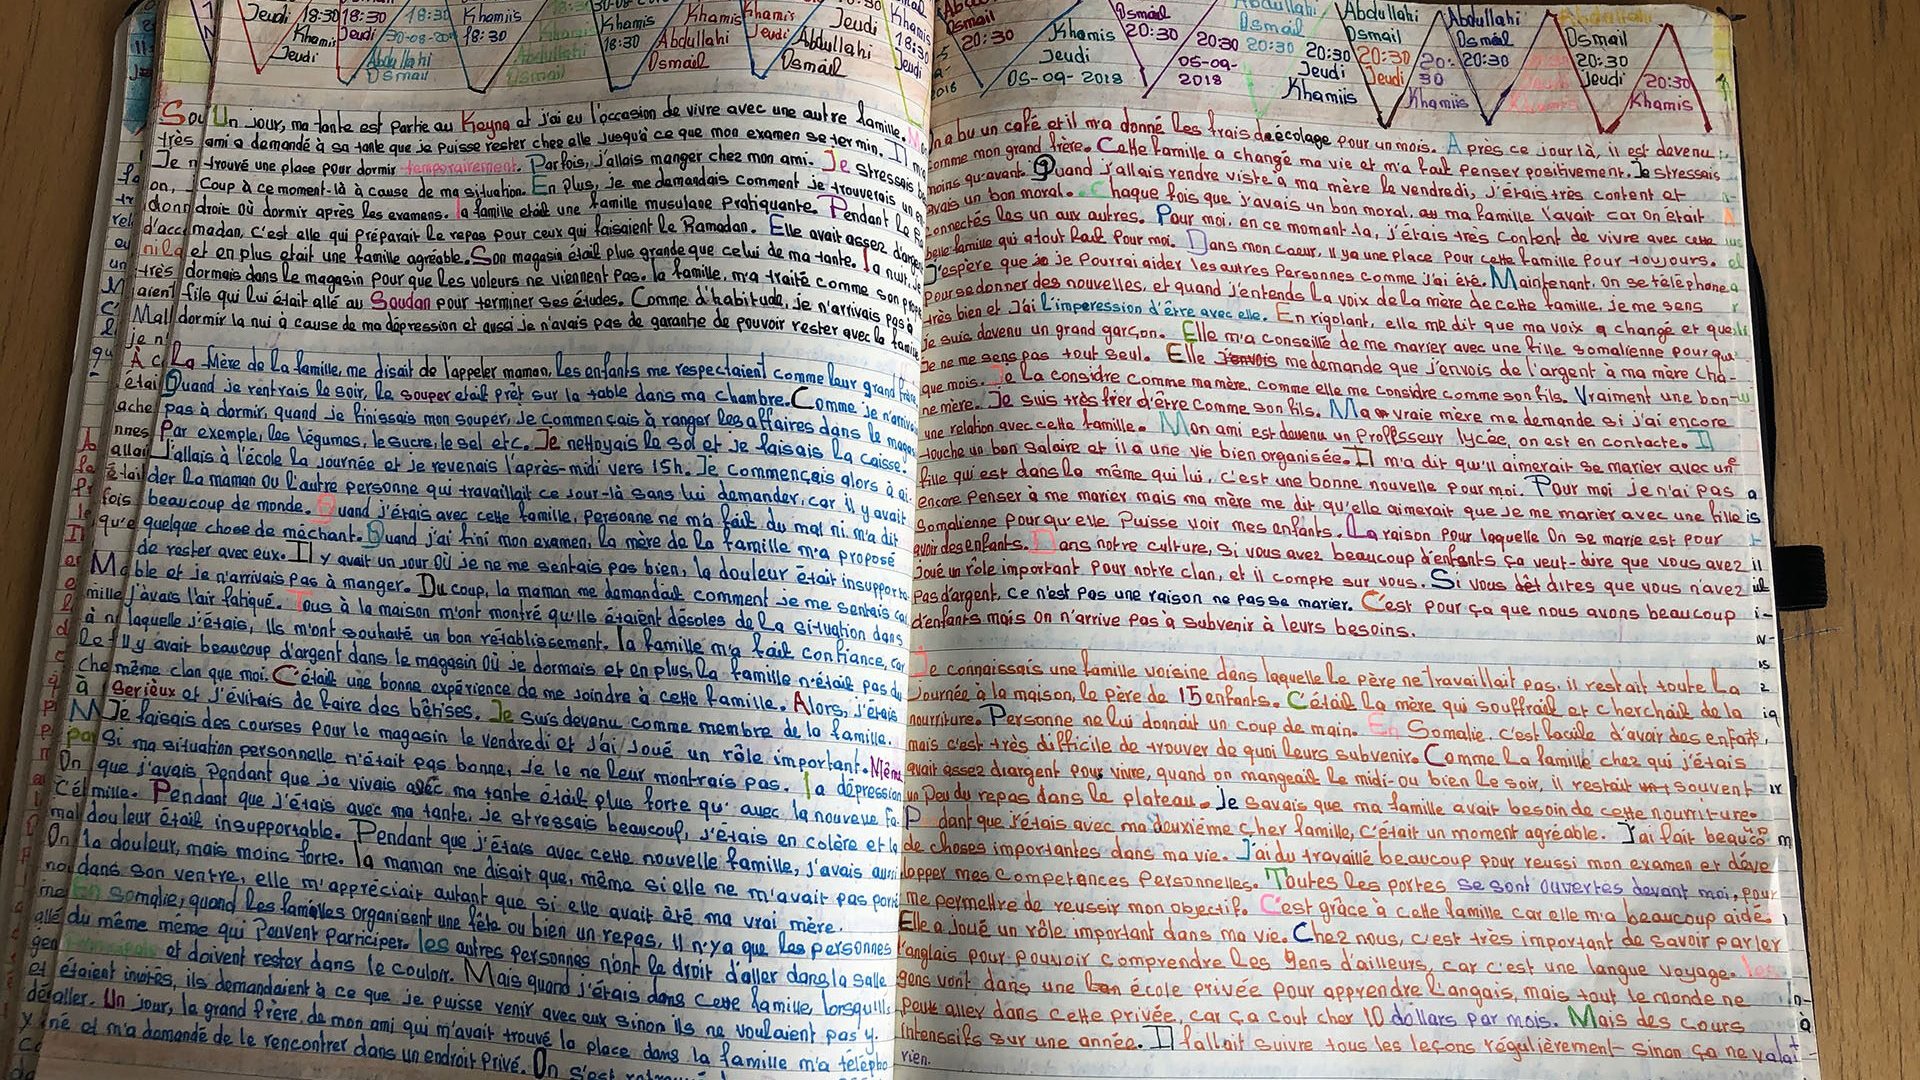 Jeudi 18:30 18:30 18:30 Khamiis Khamis Khamis Khamis Jeudi Khamis
Khamis Jeudi 30-08-20 18:30 Abdullahi 18:30 Abdullahi Jeudi Abdullahi 18:30
Jeudi Abdullahi Osmail Osmail Osmail Osmail Jeudi
Un jour, ma tante est partie au Keyna et j'ai eu l'occasion de vivre avec une autre famille.
très ami a demandé à sa tante que je puisse rester chez elle jusqu'à ce que mon examen se termin. Il m'a
trouvé une place pour dormir temporairement. Parfois, j'allais manger chez mon ami. Je stressais
Coup à ce moment-là à cause de ma situation. En plus, je me demandais comment je trouverais un en
droit où dormir après les examens. la famille etait une famille musulane pratiquante. Pendant le Ra
madan, c'est elle qui préparait le repas pour ceux qui faisaient le Ramadan. Elle avait assez d'argent
et en plus etait une famille agréable. Son magasin était plus grande que celui de ma tante. la nuit, je
dormais dans le magasin pour que les voleurs ne viennent pas. la famille, m'a traité comme son propre
fils qui lui était allé au Soudan pour terminer ses études. Comme d'habitude, je n'arrivais pas à
dormir la nui à cause de ma dépression et aussi je n'avais pas de garantie de pouvoir rester avec la famille
La Mère de la famille, me disait de l'appeler maman, les enfants me respectaient comme leur grand frère.
Quand je rentrais le soir, le souper etait prêt sur la table dans ma chambre. Comme je n'arrivais
pas à dormir, quand je finissais mon souper, je commençais à ranger les affaires dans le magasin
Par exemple, les légumes, le sucre, le sel etc. Je nettoyais le sol et je faisais la caisse.
J'allais à l'école la journée et je revenais l'après-midi vers 15h. Je commençais alors à ai-
der la maman ou l'autre personne qui travaillait ce jour-là sans lui demander, car il y avait
beaucoup de monde. Quand j'étais avec cette famille, personne ne m'a fait du mal ni m'a dit
quelque chose de méchant. Quand j'ai fini mon examen, la mère de la famille m'a proposé
de rester avec eux. Il y avait un jour où je ne me sentais pas bien, la douleur était insupporta
ble et je n'arrivais pas à manger. Du coup, la maman me demandait comment je me sentais car
j'avais l'air fatigué. Tous à la maison m'ont montré qu'ils étaient désoles de la situation dans
laquelle j'étais, Ils m'ont souhaité un bon rétablissement. la famille m'a fait confiance, car
Il y avait beaucoup d'argent dans le magasin où je dormais et en plus, la famille n'était pas du
même clan que moi. C'était une bonne expérience de me joindre à cette famille. Alors, j'étais
serieux et j'évitais de faire des bêtises. Je suis devenu comme membre de la famille.
Je faisais des courses pour le magasin le vendredi et j'ai joué un rôle important. Même
Si ma situation personnelle n'était pas bonne, je le ne leur montrais pas. la dépression
que j'avais pendant que je vivais avec ma tante était plus forte qu'avec la nouvelle fa-
mille. Pendant que j'étais avec ma tante, je stressais beaucoup, j'étais en colère et la
douleur était insupportable. Pendant que j'étais avec cette nouvelle famille, j'avais aussi
la douleur, mais moins forte. la maman me disait que, même si elle ne m'avait pas porté
dans son ventre, elle m'appréciait autant que si elle avait été ma vrai mère.
En somalie, quand les familles organisent une fête ou bien un repas, Il n'ya que les personnes
du même même qui peuvent participer. les autres personnes n'ont le droit d'aller dans la salle
et doivent rester dans le couloir. Mais quand j'étais dans cette famille, lorsqu'ils
étaient invités, ils demandaient à ce que je puisse venir avec eux sinon ils ne voulaient pas y
aller. Un jour, le grand frère de mon ami qui m'avait trouvé la place dans la famille m'a télépho
né et m'a demandé de le rencontrer dans un endroit privé. On s'est
Osmail Khamis Osmail 20:30 Abdullahi Abdullahi Abdullahi
20:30 Jeudi 20:30 05-09- 20:30 20:30 Osmail Osmail Osmail
05-09-2018 2018 Jeudi 20:30 20:30 20:30 20:30
Khamiis Jeudi Khamiis Jeudi Khamis
a bu un café et il m'a donné les frais de écolage pour un mois. Après ce jour là, il est devenu
comme mon grand frère. Cette famille a changé ma vie et m'a fait penser positivement. Je stressais
moins qu'avant. Quand j'allais rendre visite à ma mère le vendredi, j'étais très content et
avais un bon moral. Chaque fois que j'avais un bon moral, ma famille l'avait car on était
connectés les un aux autres. Pour moi, en ce moment-la, j'étais très content de vivre avec cette
belle famille qui a tout fait pour moi. Dans mon coeur, il ya une place pour cette famille pour toujours.
J'espère que je pourrai aider les autres personnes comme j'ai été. Maintenant, on se téléphone
pour se donner des nouvelles, et quand j'entends la voix de la mère de cette famille, je me sens
très bien et J'ai l'imperession d'être avec elle. En rigolant, elle me dit que ma voix a changé et que
je suis devenu un grand garçon. Elle m'a conseillé de me marier avec une fille somalienne pour qu
Je ne me sens pas tout seul. Elle me demande que j'envois de l'argent à ma mère cha-
que mois. Je la considre comme ma mère, comme elle me considre comme son fils. Vraiment une bon-
ne mère. Je suis très fier d'être comme son fils. Ma vraie mère me demande si j'ai encore
une relation avec cette famille. Mon ami est devenu un proffsseur lycée, on est en contacte. Il
touche un bon salaire et il a une vie bien organisée. Il m'a dit qu'il aimerait se marier avec une
fille qui est dans le même qui lui, c'est une bonne nouvelle pour moi. Pour moi je n'ai pas
encore penser à me marier mais ma mère me dit qu'elle aimerait que je me marier avec une fille
Somalienne pour qu'elle puisse voir mes enfants. La raison pour laquelle on se marie est pour
avoir des enfants. Dans notre culture, si vous avez beaucoup d'enfants ça veut-dire que vous avez
joué un rôle important pour notre clan, et il compte sur vous. Si vous dites que vous n'avez
pas d'argent, ce n'est pas une raison ne pas se marier. C'est pour ça que nous avons beaucoup
d'enfants mais on n'arrive pas à subvenir à leurs besoins.
Je connaissais une famille voisine dans laquelle le père ne travaillait pas, il restait toute la
journée à la maison, le père de 15 enfants. C'était la mère qui souffrait et cherchait de la
nourriture. Personne ne lui donnait un coup de main. En Somalie, c'est facile d'avoir des enfants,
mais c'est très difficile de trouver de quoi leurs subvenir. Comme la famille chez qui j'étais
avait assez d'argent pour vivre, quand on mangeait le midi ou bien le soir, il restait souvent
un peu du repas dans le plateau. Je savais que ma famille avait besoin de cette nourriture.
Pendant que j'étais avec ma deuxième cher famille, c'était un moment agréable. J'ai fait beaucoup
de choses importantes dans ma vie. J'ai du travaillé beaucoup pour reussi mon examen et déve
lopper mes competances personnelles. Toutes les portes se sont ouvertes devant moi, pour
me permettre de reussir mon objectif. C'est grâce à cette famille car elle m'a beaucoup aidé.
Elle a joué un rôle important dans ma vie. Chez nous, c'est très important de savoir parler
l'anglais pour pouvoir comprendre les gens d'ailleurs, car c'est une langue voyage. les
gens vont dans une école privée pour apprendre l'angais, mais tout le monde ne
peut aller dans cette privée, car ça cout cher 10 dollars par mois. Mais des cours
intensifs sur une année. Il fallait suivre tous les leçons régulièrement sinon ça ne valait
rien.